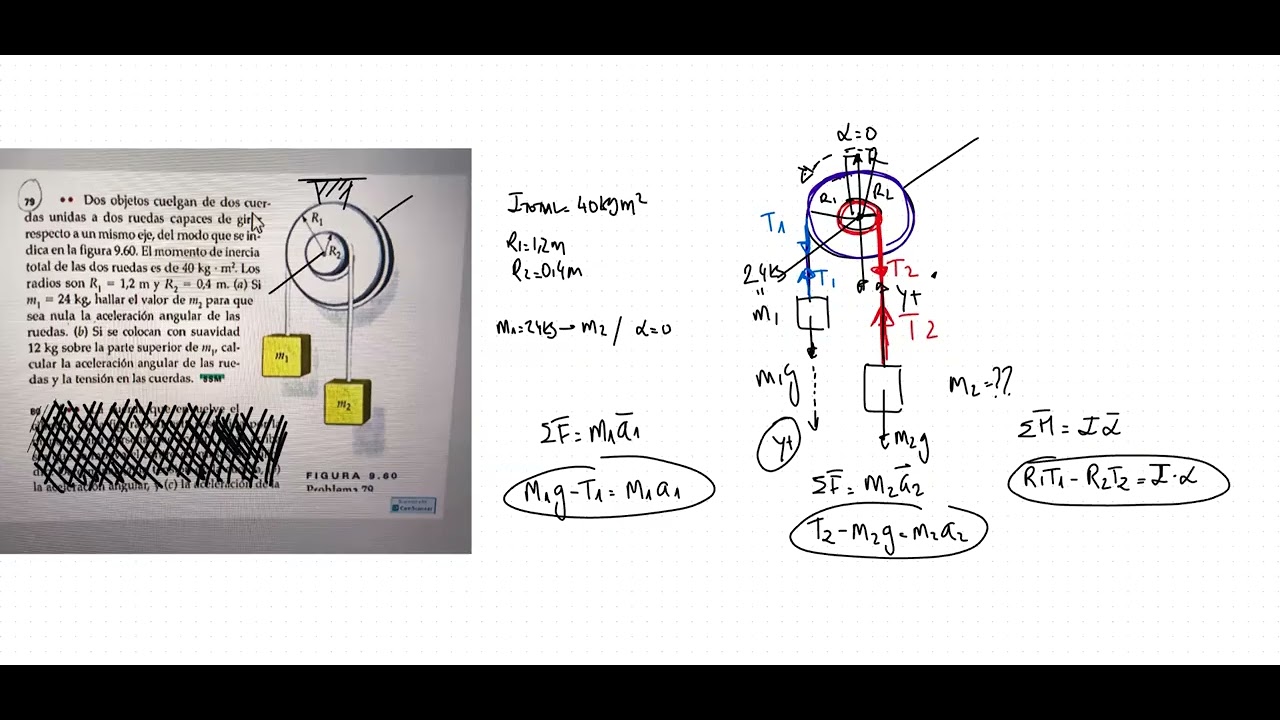 79
•• Dos objetos cuelgan de dos cuer-
das unidas a dos ruedas capaces de gir
respecto a un mismo eje, del modo que se in-
dica en la figura 9.60. El momento de inercia
total de las dos ruedas es de 40 kg · m². Los
radios son R₁ = 1,2 m y R₂ = 0,4 m. (a) Si
m₁ = 24 kg, hallar el valor de m₂ para que
sea nula la aceleración angular de las
ruedas. (b) Si se colocan con suavidad
12 kg sobre la parte superior de m₁, cal-
cular la aceleración angular de las rue-
das y la tensión en las cuerdas. SSM
80
la aceleración angular, y (c) la aceleración de la
R₁
R₂
m₁
m₂
FIGURA 9.60
Problema 79
CamScanner
ITOTAL = 40kgm²
R₁=1,2m
R₂=0,4m
m₁=24kg→ m₂ / α=0
α=0
R
R₁
R₂
T₁
T₁
24kg
"
m₁
m₁g
y+
T₂
y+
T₂
m₂=??
m₂g
ΣF̄ = m₁ā₁
m₁g-T₁ = m₁a₁
ΣF̄ = m₂ā₂
T₂-m₂g=m₂a₂
ΣM̄ = Iᾱ
R₁T₁ - R₂T₂ = I·α